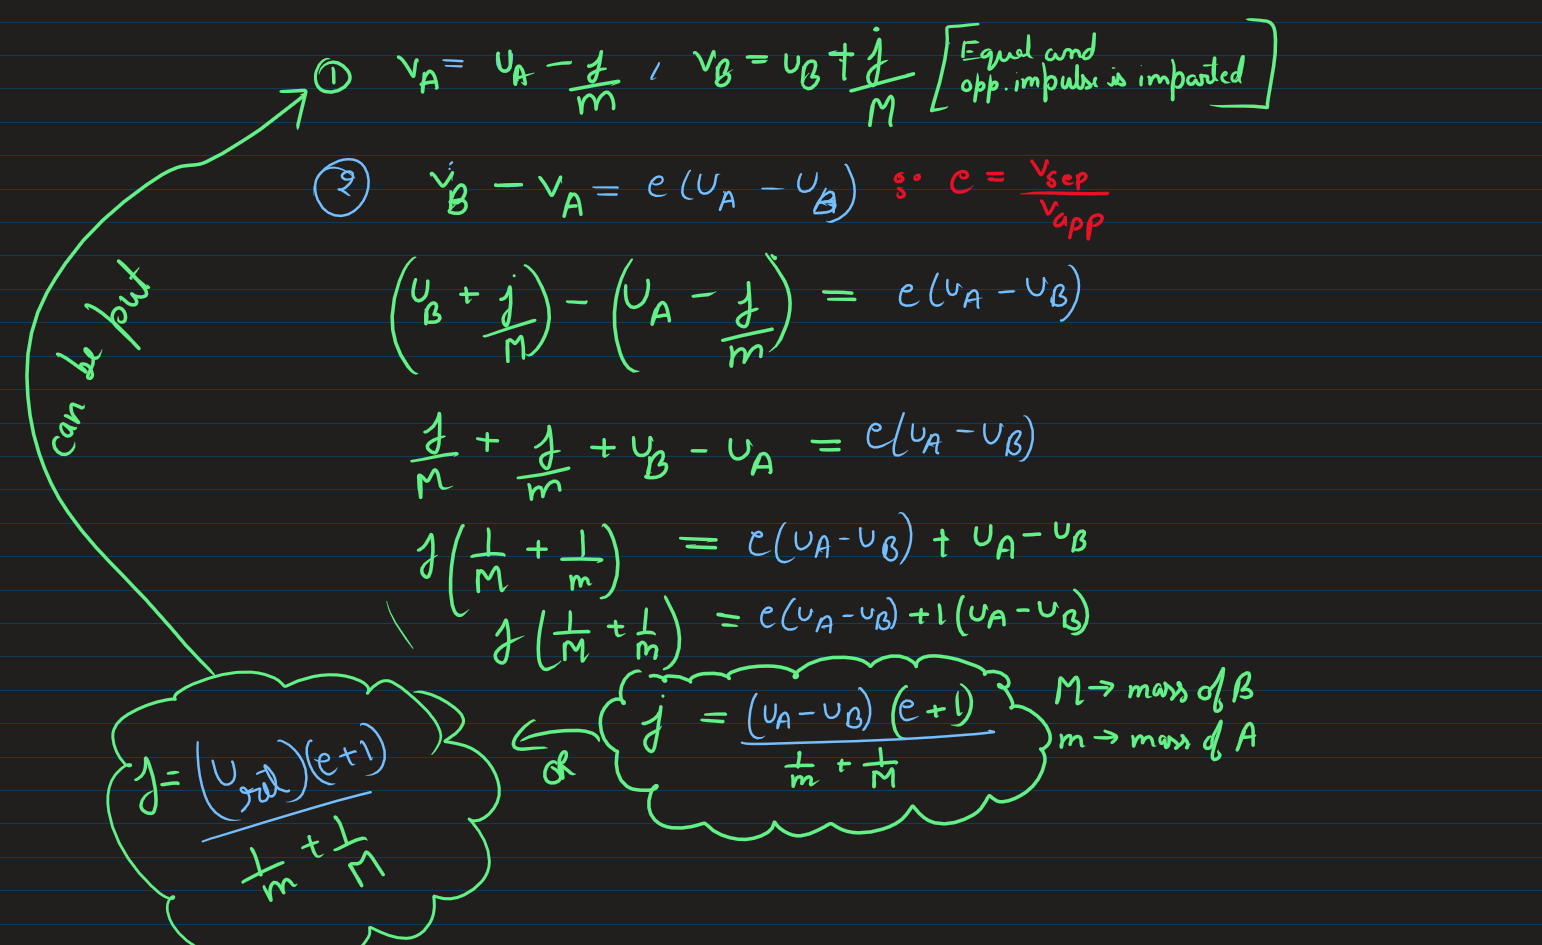 ① v_A = u_A − j/m , v_B = u_B + j/M [Equal and
opp. impulse is imparted]
② v_B − v_A = e(u_A − u_B) ∵ e = v_sep/v_app
(u_B + j/M) − (u_A − j/m) = e(u_A − u_B)
j/M + j/m + u_B − u_A = e(u_A − u_B)
j(1/M + 1/m) = e(u_A − u_B) + u_A − u_B
j(1/M + 1/m) = e(u_A − u_B) + 1(u_A − u_B)
j = (u_A − u_B)(e+1)/(1/m + 1/M)
M → mass of B
m → mass of A
OR
j = (u_rel)(e+1)/(1/m + 1/M)
can be put